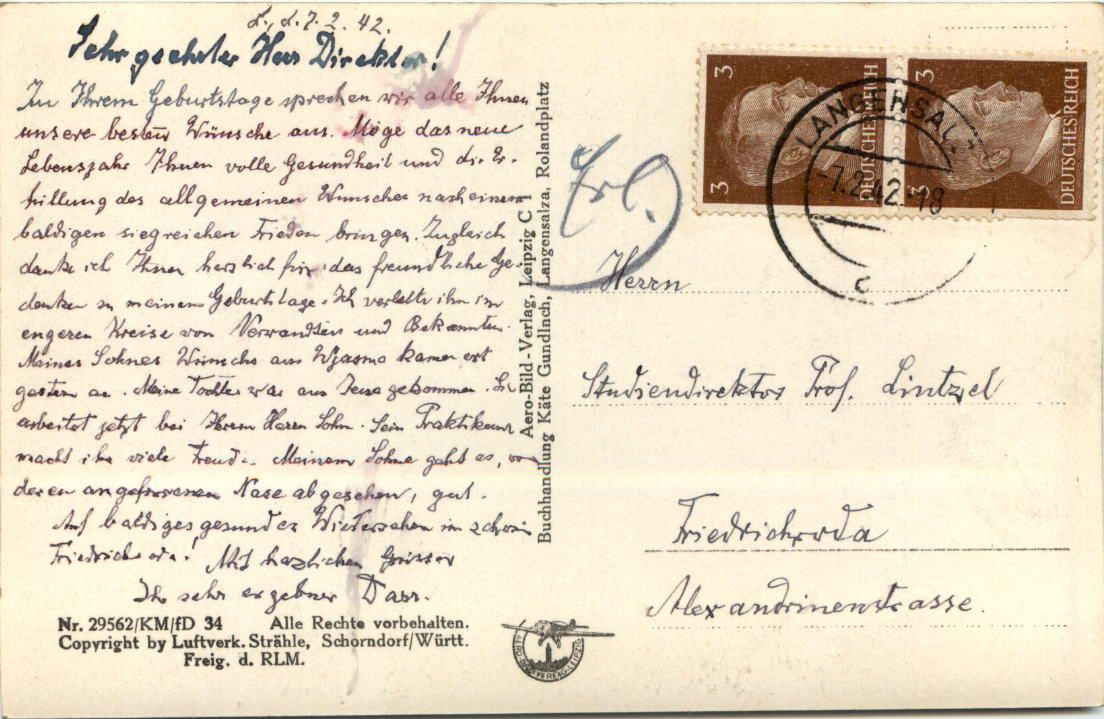 L., d. 7. 2. 42.
Sehr geehrter Herr Direktor!
Zu Ihrem Geburtstage sprechen wir alle Ihnen
unsere besten Wünsche aus. Möge das neue
Lebensjahr Ihnen volle Gesundheit und die Er-
füllung des allgemeinen Wunsches nach einem
baldigen siegreichen Frieden bringen. Zugleich
danke ich Ihnen herzlich für das freundliche Ge-
denken zu meinem Geburtstage. Ich verlebte ihn im
engeren Kreise von Verwandten und Bekannten.
Meines Sohnes Wünsche aus Wjasma kamen erst
gestern an. Meine Tochter war aus Jena gekommen. Sie
arbeitet jetzt bei Ihrem Herrn Sohn. Sein Praktikum
macht ihr viele Freude. Meinem Sohne geht es, von
deren angefrorenen Nase abgesehen, gut.
Auf baldiges gesundes Wiedersehen im schönen
Friedrichroda! Mit herzlichen Grüssen
Ihr sehr ergebner
Nr. 29562/KM/fD 34 Alle Rechte vorbehalten.
Copyright by Luftverk. Strähle, Schorndorf/Württ.
Freig. d. RLM.
Aero-Bild-Verlag, Leipzig C 1
Buchhandlung Käte Gundlach, Langensalza, Rolandplatz
AERO-BILD-VERLAG-LEIPZIG
Erl.
3
3
DEUTSCHES REICH
3
3
DEUTSCHES REICH
LANGENSAL
-7.2.42.-18
c
Herrn
Studiendirektor Prof. Lintzel
Friedrichroda
Alexandrinenstrasse.